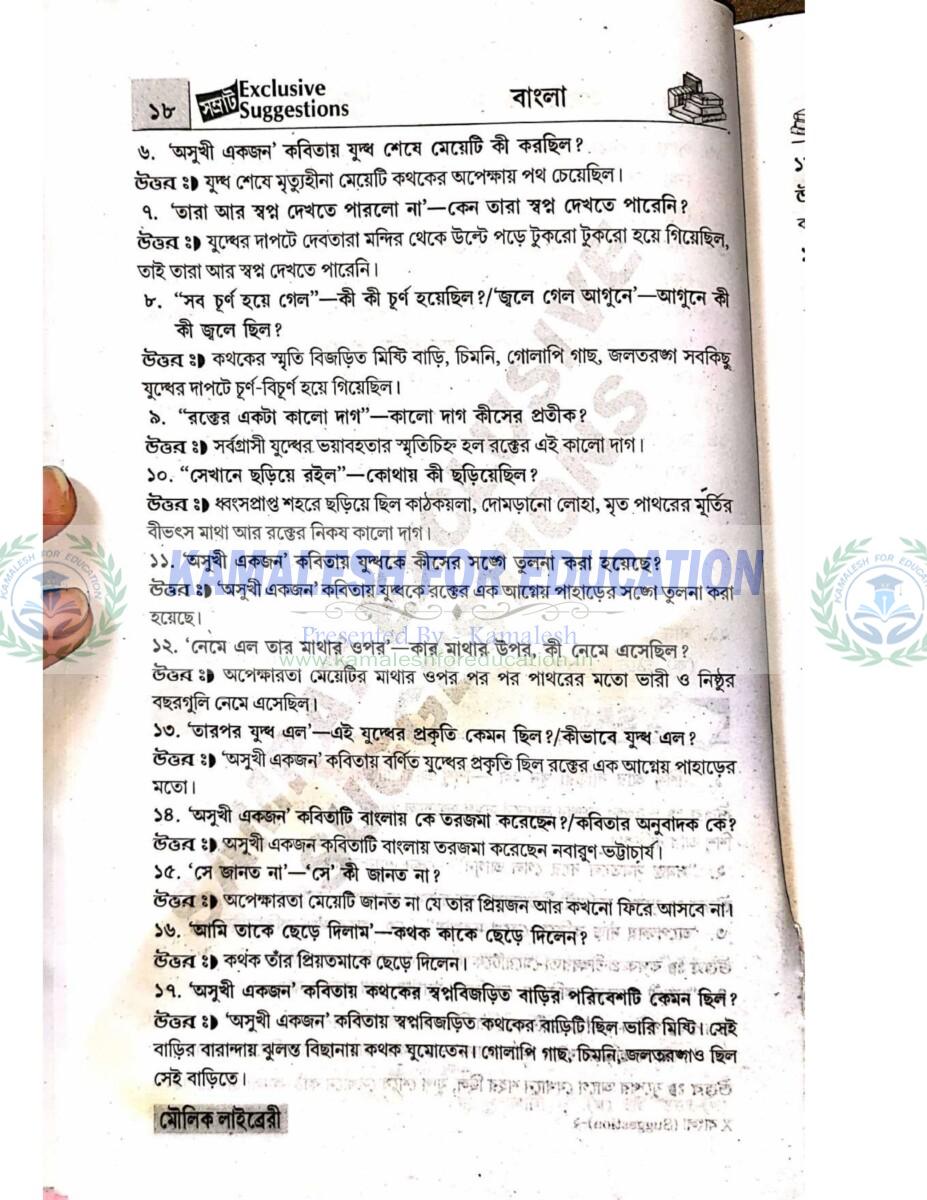 ১৮
সম্রাট Exclusive
Suggestions
বাংলা
৬. ‘অসুখী একজন’ কবিতায় যুদ্ধ শেষে মেয়েটি কী করছিল?
উত্তর ঃ) যুদ্ধ শেষে মৃত্যুহীনা মেয়েটি কথকের অপেক্ষায় পথ চেয়েছিল।
৭. ‘তারা আর স্বপ্ন দেখতে পারলো না’—কেন তারা স্বপ্ন দেখতে পারেনি?
উত্তর ঃ) যুদ্ধের দাপটে দেবতারা মন্দির থেকে উল্টে পড়ে টুকরো টুকরো হয়ে গিয়েছিল,
তাই তারা আর স্বপ্ন দেখতে পারেনি।
৮. “সব চূর্ণ হয়ে গেল”—কী কী চূর্ণ হয়েছিল?/‘জ্বলে গেল আগুনে’—আগুনে কী
কী জ্বলে ছিল?
উত্তর ঃ) কথকের স্মৃতি বিজড়িত মিষ্টি বাড়ি, চিমনি, গোলাপি গাছ, জলতরঙ্গ সবকিছু
যুদ্ধের দাপটে চূর্ণ-বিচূর্ণ হয়ে গিয়েছিল।
৯. “রক্তের একটা কালো দাগ”—কালো দাগ কীসের প্রতীক?
উত্তর ঃ) সর্বগ্রাসী যুদ্ধের ভয়াবহতার স্মৃতিচিহ্ন হল রক্তের এই কালো দাগ।
১০. “সেখানে ছড়িয়ে রইল”—কোথায় কী ছড়িয়েছিল?
উত্তর ঃ) ধ্বংসপ্রাপ্ত শহরে ছড়িয়ে ছিল কাঠকয়লা, দোমড়ানো লোহা, মৃত পাথরের মূর্তির
বীভৎস মাথা আর রক্তের নিকষ কালো দাগ।
KAMALESH FOR EDUCATION
১১. ‘অসুখী একজন’ কবিতায় যুদ্ধকে কীসের সঙ্গে তুলনা করা হয়েছে?
উত্তর ঃ) ‘অসুখী একজন’ কবিতায় যুদ্ধকে রক্তের এক আগ্নেয় পাহাড়ের সঙ্গে তুলনা করা
হয়েছে।
Presented By - Kamalesh
১২. ‘নেমে এল তার মাথার ওপর’—কার মাথার উপর, কী নেমে এসেছিল?
www.kamaleshforeducation.in
উত্তর ঃ) অপেক্ষারতা মেয়েটির মাথার ওপর পর পর পাথরের মতো ভারী ও নিষ্ঠুর
বছরগুলি নেমে এসেছিল।
১৩. ‘তারপর যুদ্ধ এল’—এই যুদ্ধের প্রকৃতি কেমন ছিল?/কীভাবে যুদ্ধ এল?
উত্তর ঃ) ‘অসুখী একজন’ কবিতায় বর্ণিত যুদ্ধের প্রকৃতি ছিল রক্তের এক আগ্নেয় পাহাড়ের
মতো।
১৪. ‘অসুখী একজন’ কবিতাটি বাংলায় কে তরজমা করেছেন?/কবিতার অনুবাদক কে?
উত্তর ঃ) অসুখী একজন কবিতাটি বাংলায় তরজমা করেছেন নবারুণ ভট্টাচার্য।
১৫. ‘সে জানত না’—‘সে’ কী জানত না?
উত্তর ঃ) অপেক্ষারতা মেয়েটি জানত না যে তার প্রিয়জন আর কখনো ফিরে আসবে না।
১৬. ‘আমি তাকে ছেড়ে দিলাম’—কথক কাকে ছেড়ে দিলেন?
উত্তর ঃ) কথক তাঁর প্রিয়তমাকে ছেড়ে দিলেন।
১৭. ‘অসুখী একজন’ কবিতায় কথকের স্বপ্নবিজড়িত বাড়ির পরিবেশটি কেমন ছিল?
উত্তর ঃ) ‘অসুখী একজন’ কবিতায় স্বপ্নবিজড়িত কথকের বাড়িটি ছিল ভারি মিষ্টি। সেই
বাড়ির বারান্দায় ঝুলন্ত বিছানায় কথক ঘুমোতেন। গোলাপি গাছ, চিমনি, জলতরঙ্গও ছিল
সেই বাড়িতে।
মৌলিক লাইব্রেরী